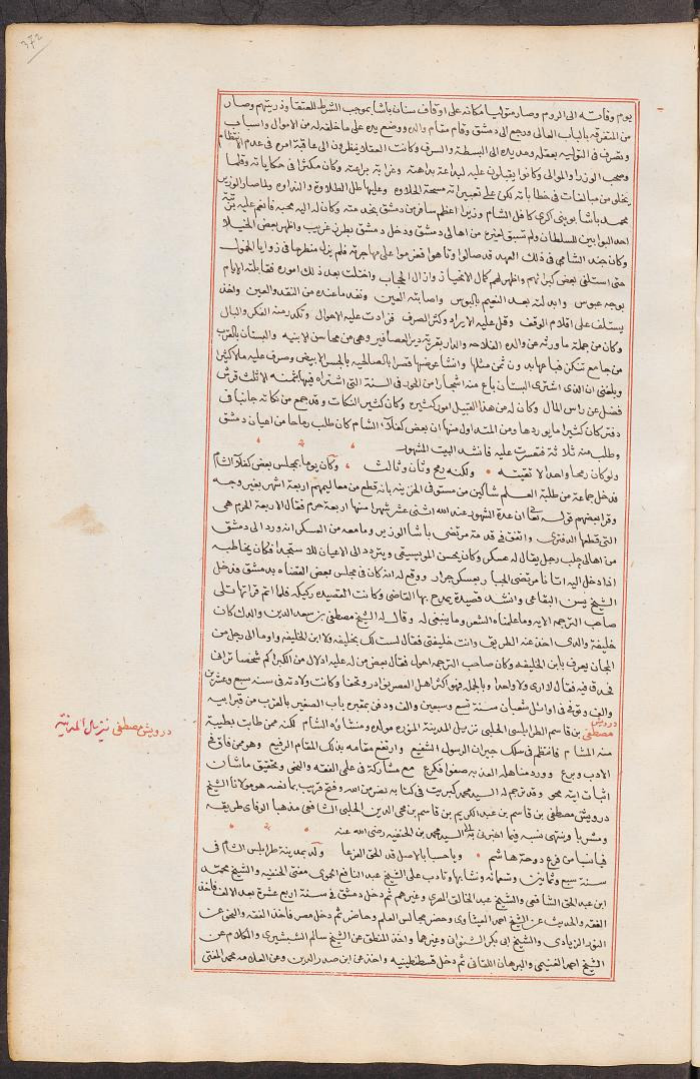 ٣٧٢
يوم وفاته الى الروم وصار متوليا مكانه على اوقاف سنان باشا بموجب الشرط للعتقا وذريتهم وصار
من المتفرقه بالباب العالى ورجع الى دمشق وقام مقام والده ووضع يده على ما خلفه له من الاموال واسباب
وتصرف فى التوليه بعقله ومد يده الى البسطة والسرف وكانت العقلا ينظرون الى عاقبة امره فى عدم الانتظام
وصحب الوزرا والموالى وكانوا يقبلون عليه لبداعة بداهته وغرابة براعته وكان مكثرا فى حكاياته وقلما
يخلو من مبالغات فى خطاباته لكن على تعبيراته مسحة الحلاوه وعليها طل الطلاوة والنداوه ولما صار الوزير
محمد باشا بوينى اكرى كافل الشام وزيرا اعظم سافر من دمشق بخدمته وكان له اليه محبه فانعم عليه برتبة
احد البوابين للسلطان ولم تسبق لغيره من اهالى دمشق ودخل دمشق بطرز غريب واظهر بعض الخيلا
وكان جند الشامى فى ذلك العهد قد صالوا وتاهوا فعزموا على مهاجرته فلم يزله منظرها فى زوايا الخول
حتى استلقى بعض كبرائهم واظهر لهم كمال الانحياز وازال الحجاب واختلت بعد ذلك اموره فقابلته الايام
بوجه عبوس وابدلته بعد النعيم بالبوس واصابته العين ونفد ما عنده من النقد والعين واخذ
يستلف على اقلام الوقف وقل عليه الايراد وكثر الصرف فزادت عليه الاهوال وتكدر منه الفكر والبال
وكان من جملة ما ورثه عن والده الفلاحه والدار بقرية دير العصافير وهى من محاسن الابنيه والبستان بالقرب
من جامع تنكز فباعها بدون ثمن مثلها وانشا عوضها قصرا بالصالحيه بالجسر الابيض وصرف عليه مالا كثيرا
وبلغنى ان الذى اشترى البستان باع منه اشجارا من الحور فى السنة التى اشتراه فيها بثمنه الا ثلث قرش
فضل عن راس المال وكان له من هذا القبيل امور كثيره وكان كثير النكات وقد جمع من نكاته جانبا فى
دفتر كان كثيرا ما يوردها ومن المتداول منها ان بعض كفلآء الشام كان طلب رماحا من اعيان دمشق
وطلب منه ثلاثة فتعسرت عليه فانشد البيت المشهور
ولو كان رمحا واحدا لاتقيته ولكنه رمح وثان وثالث وكان يوما بمجلس بعض كفلآء الشام
فدخل جماعة من طلبة العلم شاكين من مستوفى الخزينه بانه قطع من معاليمهم اربعة اشهر بغير وجه
وقرا بعضهم قوله تعالى ان عدة الشهور عند الله اثنى عشر شهرا منها اربعة حرم فقال الاربعة الحرم هى
التى قطعها الدفترى واتفق فى قدمة مرتضى باشا الوزير وما معه من العسكر انه ورد الى دمشق
من اهالى حلب رجل يقال له عسكر وكان يحسن الموسيقى ويتردد الى الاعيان للاستجدآ فكان يخاطبه
اذا دخل اليه اتانا مرتضى الجبار بعسكر جرار ووقع له انه كان فى مجلس بعض القضاه بدمشق فدخل
الشيخ يس البقاعى وانشد قصيدة يمدح بها القاضى وكانت القصيده ركيكه فلما اتم قراتها تلى
صاحب الترجمه الايه وما علمناه الشعر وما ينبغى له وقال له الشيخ مصطفى بن سعد الدين والدك كان
خليفة والدى اخذ عنه الطريق وانت خليفتى فقال لست لك بخليفه ولا ابن الخليفه واوما الى رجل من
المجان يعرف بابن الخليفه وكان صاحب الترجمه احول فقال بعض من له عليه ادلال من الكبرا كم شخصا ترانى
فحدقا فيه فقال لا ارى ولا واحدا وبالجملة فهو اكثر اهل العصر نوادر وتحفا وكانت ولادته فى سنه سبع وعشرين
والف وتوفى فى اوائل شعبان سنة تسع وسبعين والف ودفن بمقبرة باب الصغير بالقرب من قبر ابيه
درويش مصطفى بن قاسم الطرابلسى الحلبى نزيل المدينة المنوره مولده ومنشاؤه الشام لكنه ممن طابت بطيبة
منه المشام فانتظم فى سلك جيران الرسول الشفيع وارتفع مقامه بذلك المقام الرفيع وهو ممن فاق فى
الادب وبرع وورد مناهله العذبه صفوا فكرع مع مشاركة فى على الفقه والنحو وتحقيق ما شان
اثبات ايته محو وقد ترجم له السيد محمد كبريت فى كتابه نصر من الله وفتح قريب بما نصه هو مولانا الشيخ
درويش مصطفى بن قاسم بن عبد الكريم بن قاسم بن محى الدين الحلبى الشافعى مذهبا الوفاى طريقة
ومشربا وينتهى نسبه فيما اخبرنى به الى السيد محمد بن الحنفيه رضى الله عنه
فيا نسبا من فرع دوحة هاشم ويا حسبا بالاصل قد الحق الفرعا ولد بمدينة طرابلس الشام فى
سنة سبع وثمانين وتسعمائه ونشا بها وتادب على الشيخ عبد النافع الحموى مفتى الحنفيه والشيخ محمد
ابن عبد الحق الشافعى والشيخ عبد الخالق المصرى وغيرهم ثم دخل دمشق فى سنة اربع عشرة بعد الالف فاخذ
الفقه والحديث عن الشيخ احمد العيثاوى وحضر مجالس العلم وحاضر ثم دخل مصر فاخذ الفقه والنحو عن
النور الزيادى والشيخ ابى بكر الشنوانى وغيرهما واخذ المنطق عن الشيخ سالم الشبشيرى والكلام عن
الشيخ احمد الغنيمى والبرهان اللقانى ثم دخل قسطنطينيه واخذ عن ابن صدر الدين وعن العلامه محمد المفتى
درويش مصطفى نزيل المدينة